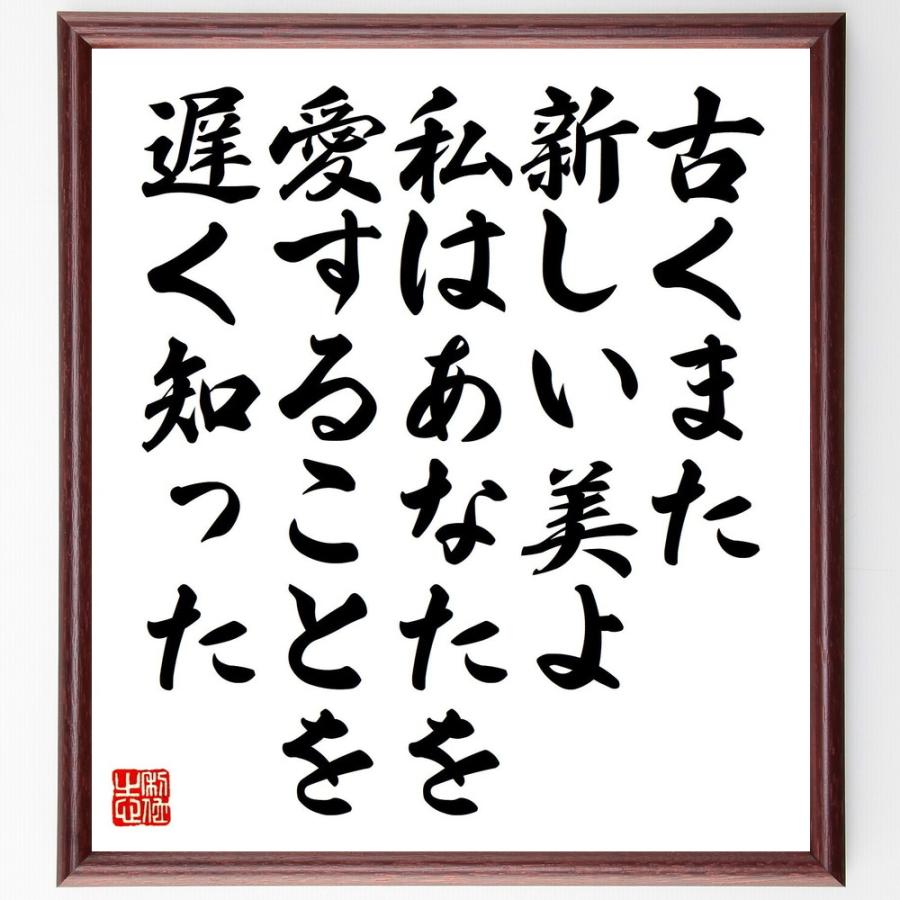 古くまた
新しい美よ
私はあなたを
愛することを
遅く知った